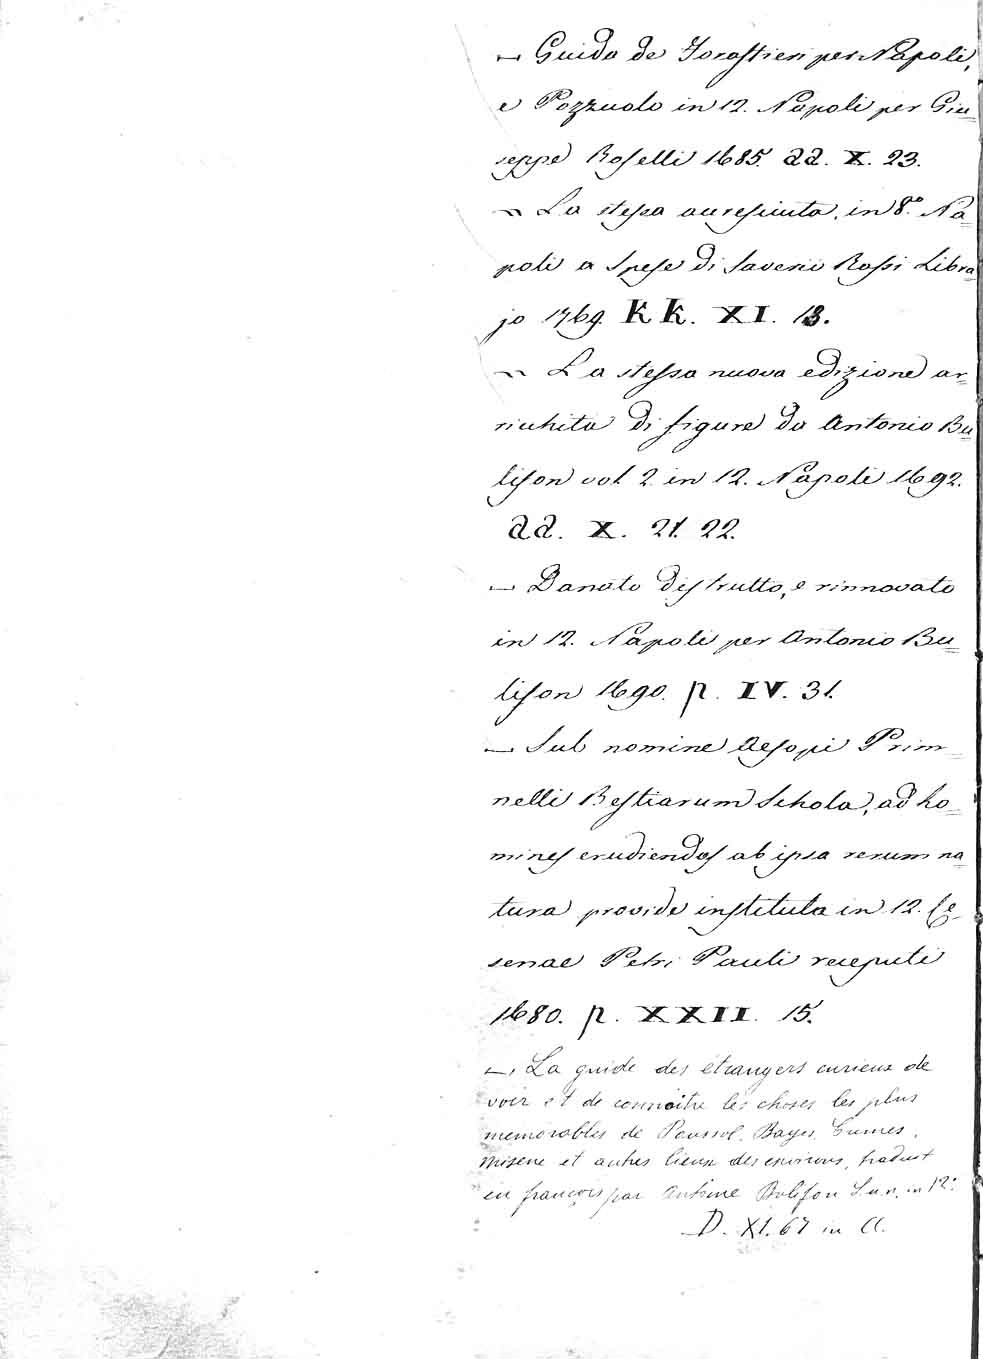 — Guida de Forastieri per Napoli,
e Pozzuolo in 12. Napoli per Giu=
seppe Roselli 1685. aa. X. 23.
— La stessa accresciuta, in 8.º Na=
poli a spese di Saverio Rossi Libra=
jo 1769. KK. XI. 13.
— La stessa nuova edizione ar=
richita di figure da Antonio Bu=
lifon vol. 2 in 12. Napoli 1692.
aa. X. 21. 22.
— Donato distrutto, e rinnovato
in 12. Napoli per Antonio Bu=
lifon 1690. p. IV. 31.
— Sub nomine Aesopi Prim=
nelli Bestiarum Schola, ad ho=
mines erudiendos ab ipsa rerum na=
tura provide instituta in 12. Ce=
senae Petri Pauli receputi
1680. p. XXII. 15.
— La guide des étrangers curieux de
voir et de connoitre les choses les plus
memorables de Poussol, Bayes, Cumes,
Misene et autres lieux des environs, traduit
en françois par Antoine Bulifon S.a.n. in 12º
D. XI. 67 in A.